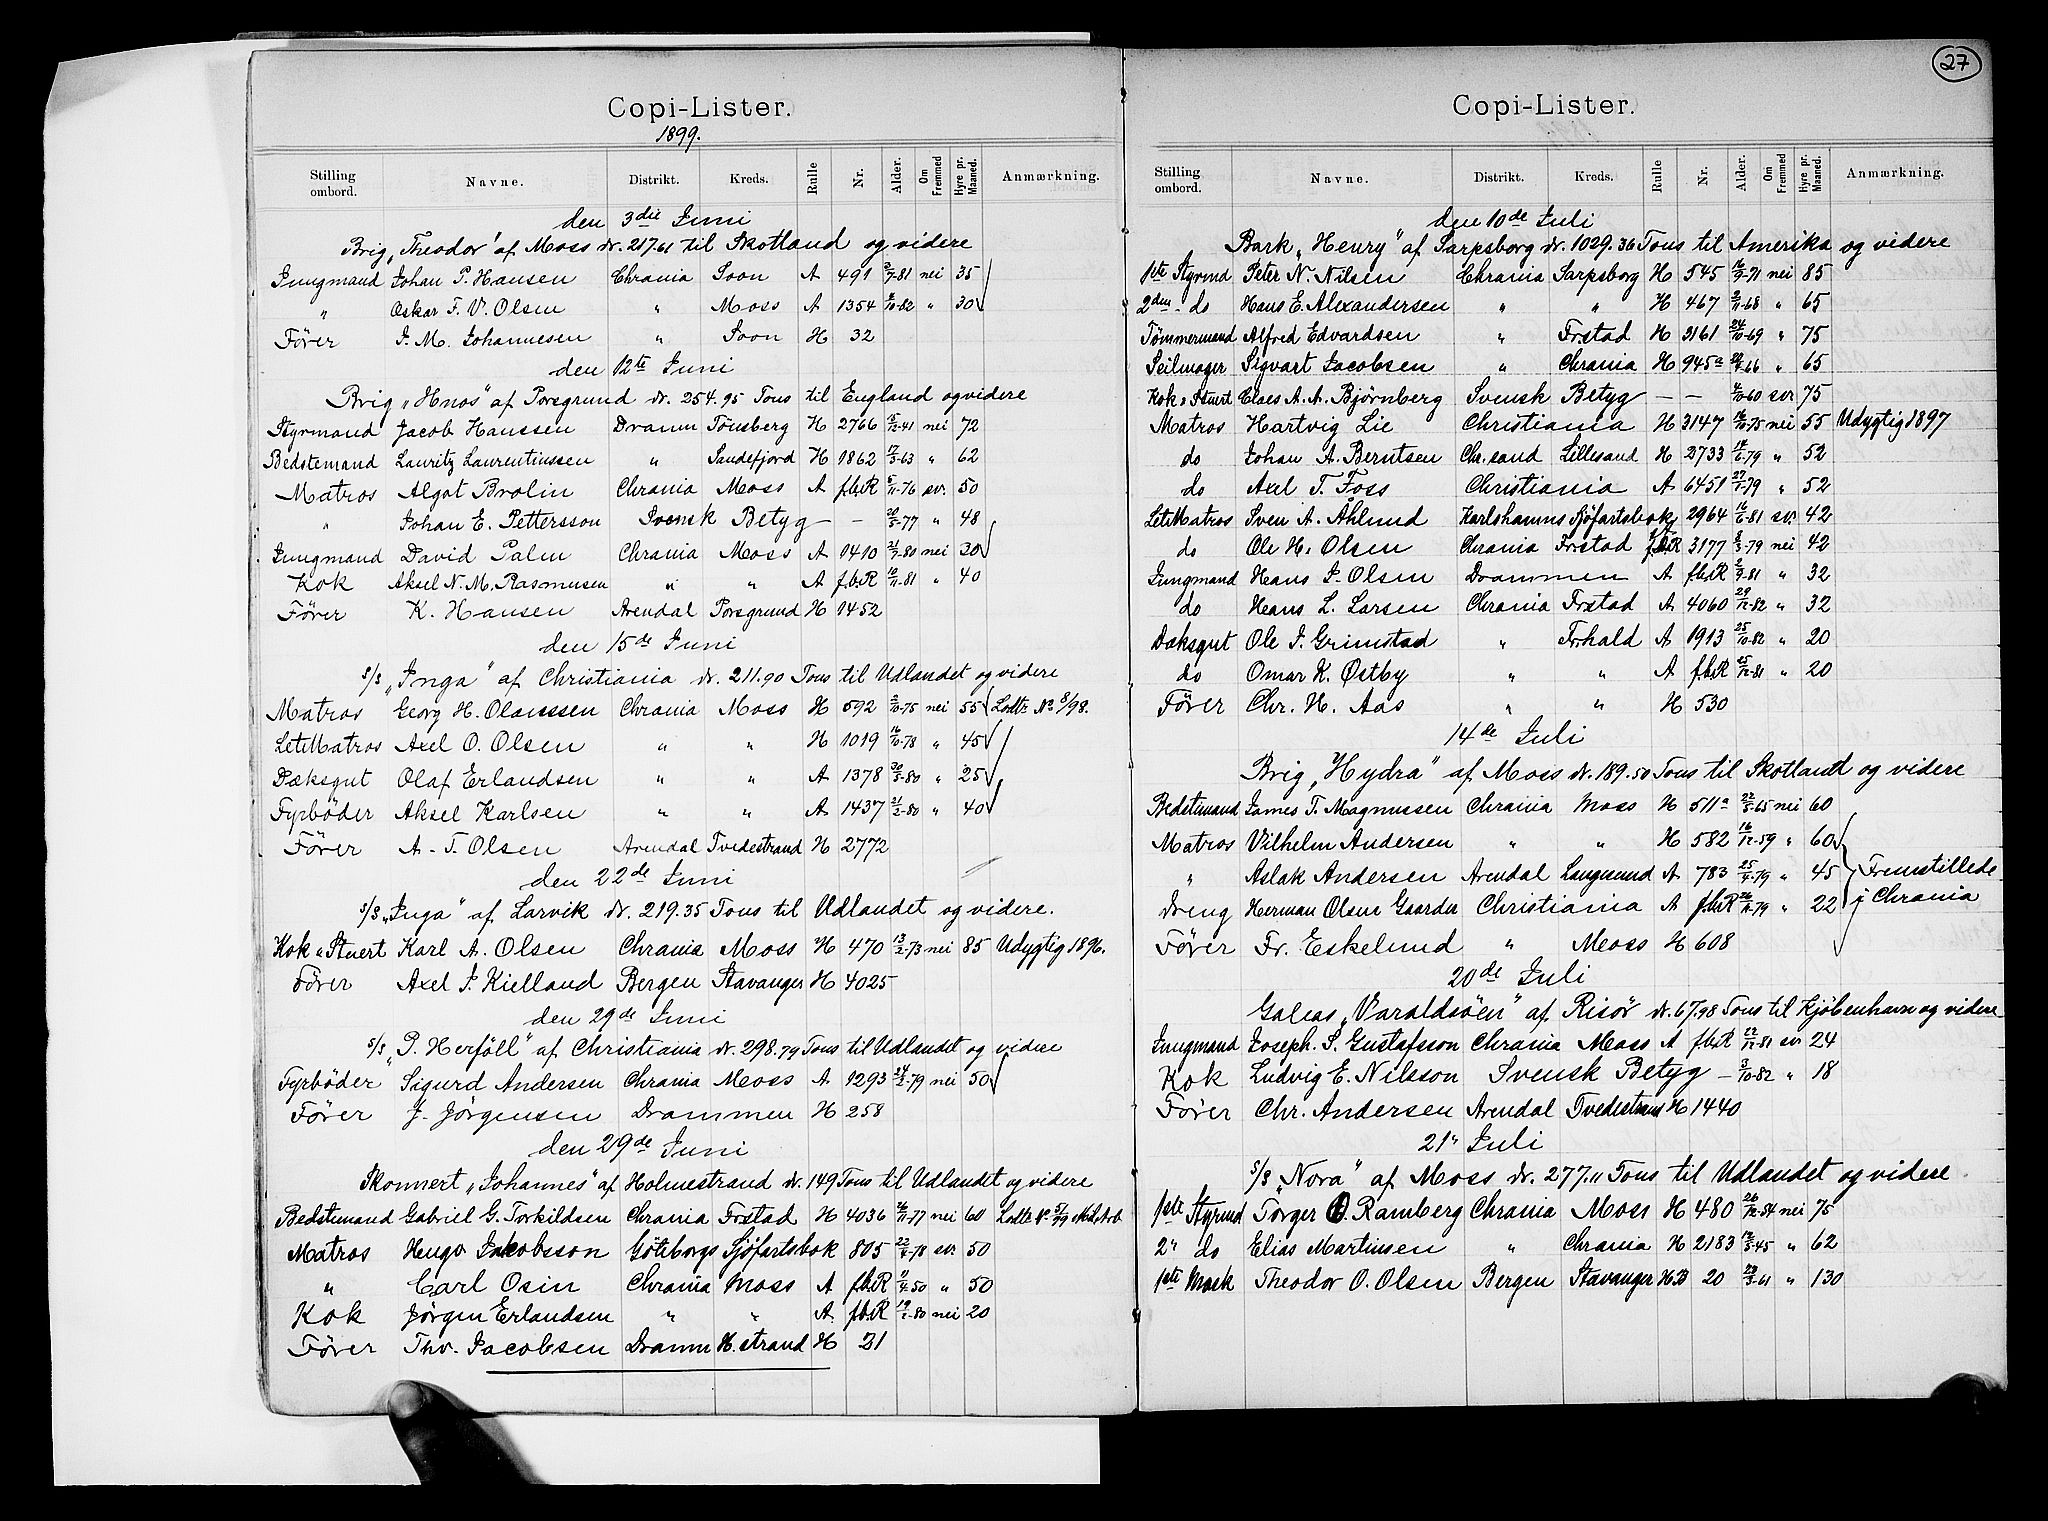 Copi-Lister.
1899.
Stilling ombord. Navne. Distrikt. Kreds. Rulle Nr. Alder. Om Fremmed Hyre pr. Maaned. Anmærkning.
den 3die Juni
Brig „Theodor" af Moss dr. 217.61 til Skotland og videre
Jungmand Johan P. Hansen Chrania Soon A 491 7-81 nei 35
" Oskar F. V. Olsen " Moss A 1354 10-82 " 30
Förer J. M. Johannesen " Soon H 32
den 12te Juni
Brig „Hnos" af Porsgrund dr. 254.95 Tons til England og videre
Styrmand Jacob Hanssen Dramm Tönsberg H 2766 41 nei 72
Bedstemand Lauritz Laurentiussen " Sandefjord H 1862 17/3-63 " 62
Matros Algot Brolin Chrania Moss A f.b.R 11-76 sv. 50
" Johan E. Pettersson Svensk Betyg – – 20/5-77 " 48
Jungmand David Palm Chrania Moss A 1410 80 nei 30
Kok Aksel N. M. Rasmusen " " A f.b.R 10/11-81 " 40
Förer K. Hansen Arendal Porsgrund H 1452
den 15de Juni
S/S „Inga" af Christiania dr. 211.90 Tons til Udlandet og videre
Matros Georg H. Olaussen Chrania Moss H 592 10-75 nei 55 Lodtr. No 8/98.
LetMatros Axel O. Olsen " " H 1019 16/10-78 " 45
Dæksgut Olaf Erlandsen " " A 1378 30/5-80 " 25
Fyrböder Aksel Karlsen " " A 1437 21/2-80 " 40
Förer A. T. Olsen Arendal Tvedestrand H 2772
den 22de Juni
S/S „Inga" af Larvik dr. 219.35 Tons til Udlandet og videre.
Kok & Stuert Karl A. Olsen Chrania Moss H 470 13/2-73 nei 85 Udygtig 1896.
Förer Axel J. Kielland Bergen Stavanger H 4025
den 29de Juni
S/S „P. Herföll" af Christiania dr. 298.79 Tons til Udlandet og videre
Fyrböder Sigurd Andersen Chrania Moss A 1293 24/2-79 nei 50
Förer J. Jörgensen Drammen H 258
den 29de Juni
Skonnert „Johannes" af Holmestrand dr. 149 Tons til Udlandet og videre
Bedstemand Gabriel G. Torkildsen Chrania Frstad H 4036 11-77 nei 60 Lodtr. No 5/99
Matros Hugo Jakobsson Göteborgs Sjöfartsbok 805 78 sv. 50
" Carl Osin Chrania Moss A f.b.R 50 " 50
Kok Jörgen Erlandsen " " A f.b.R 80 nei 20
Förer Thv. Jacobsen Dramm H.strand H 21
27
Copi-Lister.
Stilling ombord. Navne. Distrikt. Kreds. Rulle Nr. Alder. Om Fremmed Hyre pr. Maaned. Anmærkning.
den 10de Juli
Bark „Henry" af Sarpsborg dr. 1029.36 Tons til Amerika og videre
1ste Styrmd Peter N. Nilsen Chrania Sarpsborg H 545 71 nei 85
2den do Hans E. Alexandersen " " H 467 11-68 " 65
Tömmermand Alfred Edvardsen " Fr.stad H 2161 24/10-69 " 75
Seilmager Sigvart Jacobsen " Chrania H 945a 66 " 65
Kok & Stuert Claes A. A. Bjørnberg Svensk Betyg – – 10-60 sv 75
Matros Hartvig Lie Christiania H 3147 10-75 nei 55 Udygtig 1897
do Johan A. Berntsen Chr.sand Lillesand H 2733 79 " 52
do Axel T. Foss Christiania A 6451 79 " 52
LetMatros Sven A. Åhlund Karlshamns Sjöfartsbok 2964 81 sv. 42
do Ole H. Olsen Chrania Frstad f.b.R 3177 79 nei 42
Jungmand Hans J. Olsen Drammen A f.b.R 81 " 32
do Hans L. Larsen Chrania Frstad A 4060 29/12-82 " 32
Dæksgut Ole J. Grimstad " Frhald A 1913 25/10-82 " 20
do Omar K. Østby " " A f.b.R 25/12-81 " 20
Förer Chr. H. Aas " " H 530
14de Juli
Brig „Hydra" af Moss dr. 189.50 Tons til Skotland og videre
Bedstemand James T. Magnussen Chrania Moss H 511a 22/5-65 nei 60
Matros Vilhelm Andersen " " H 582 16/12-59 " 60
" Aslak Andersen Arendal Langesund A 783 79 " 45 Fremstillede
Dreng Herman Olsen Gaarder Christiania A f.b.R 79 " 22 i Chrania
Förer Fr. Eskelund " Moss H 608
20de Juli
Galeas „Varaldsöen" af Risör dr. 67.98 Tons til Kjöbenhavn og videre
Jungmand Joseph. S. Gustafsson Chrania Moss A f.b.R 12-81 sv 24
Kok Ludvig E. Nilsson Svensk Betyg – 3/10-82 " 18
Förer Chr. Andersen Arendal Tvedestrand H 1440
21" Juli
S/S „Nora" af Moss dr. 277." Tons til Udlandet og videre
1ste Styrmd Torger O. Ramberg Chrania Moss H 480 26/12-54 nei 75
2" do Elias Martinsen " Chrania H 2183 45 " 62
1ste Mask Theodor O. Olsen Bergen Stavanger HB 20 61 " 130